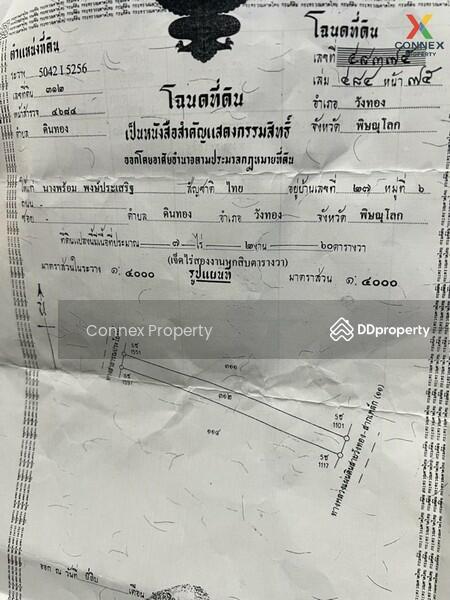 ตำแหน่งที่ดิน
ระวาง 5042 I 5256
เลขที่ดิน ๓๑๒
หน้าสำรวจ ๔๖๘๔
ตำบล ดินทอง
โฉนดที่ดิน
เลขที่ ๔๘๓๗๕
เล่ม ๔๘๔ หน้า ๗๕
อำเภอ วังทอง
จังหวัด พิษณุโลก
CONNEX
PROPERTY
โฉนดที่ดิน
เป็นหนังสือสำคัญแสดงกรรมสิทธิ์
ออกโดยอาศัยอำนาจตามประมวลกฎหมายที่ดิน
ให้แก่ นางพร้อม พงษ์ประเสริฐ สัญชาติ ไทย อยู่บ้านเลขที่ ๒๗ หมู่ที่ ๖
ถนน -
ซอย - ตำบล ดินทอง อำเภอ วังทอง จังหวัด พิษณุโลก
ที่ดินแปลงนี้มีเนื้อที่ประมาณ ๗ ไร่ ๒ งาน ๖๐ ตารางวา
(เจ็ดไร่สองงานหกสิบตารางวา)
มาตราส่วนในระวาง ๑: ๔๐๐๐ รูปแผนที่ มาตราส่วน ๑: ๔๐๐๐
Connex Property
DDproperty
๓๑๑
๓๑๒
๑๑๔
1551
1557
1101
1117
ทางหลวงแผ่นดินสายวังทอง-สากเหล็ก (๑๑)
ออก ณ วันที่ เดือน